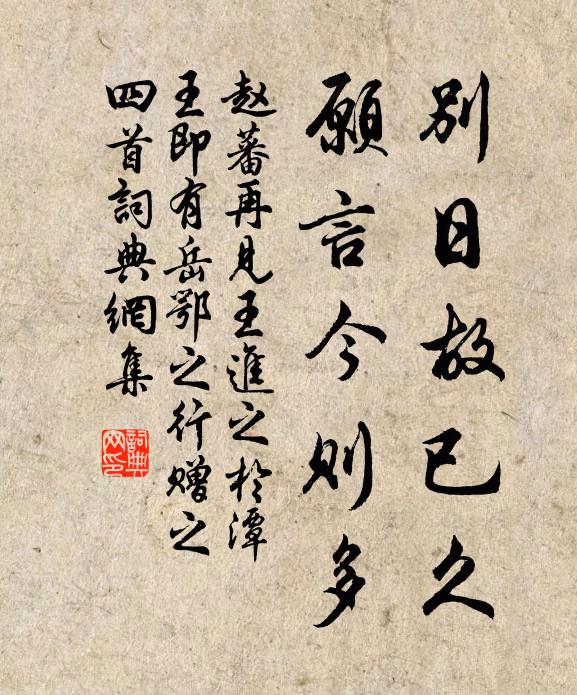 别日故已久
願言今则多
赵蕃再见王進之於潭
王即有岳鄂之行赠之
四首詞典網集
詞典
网印